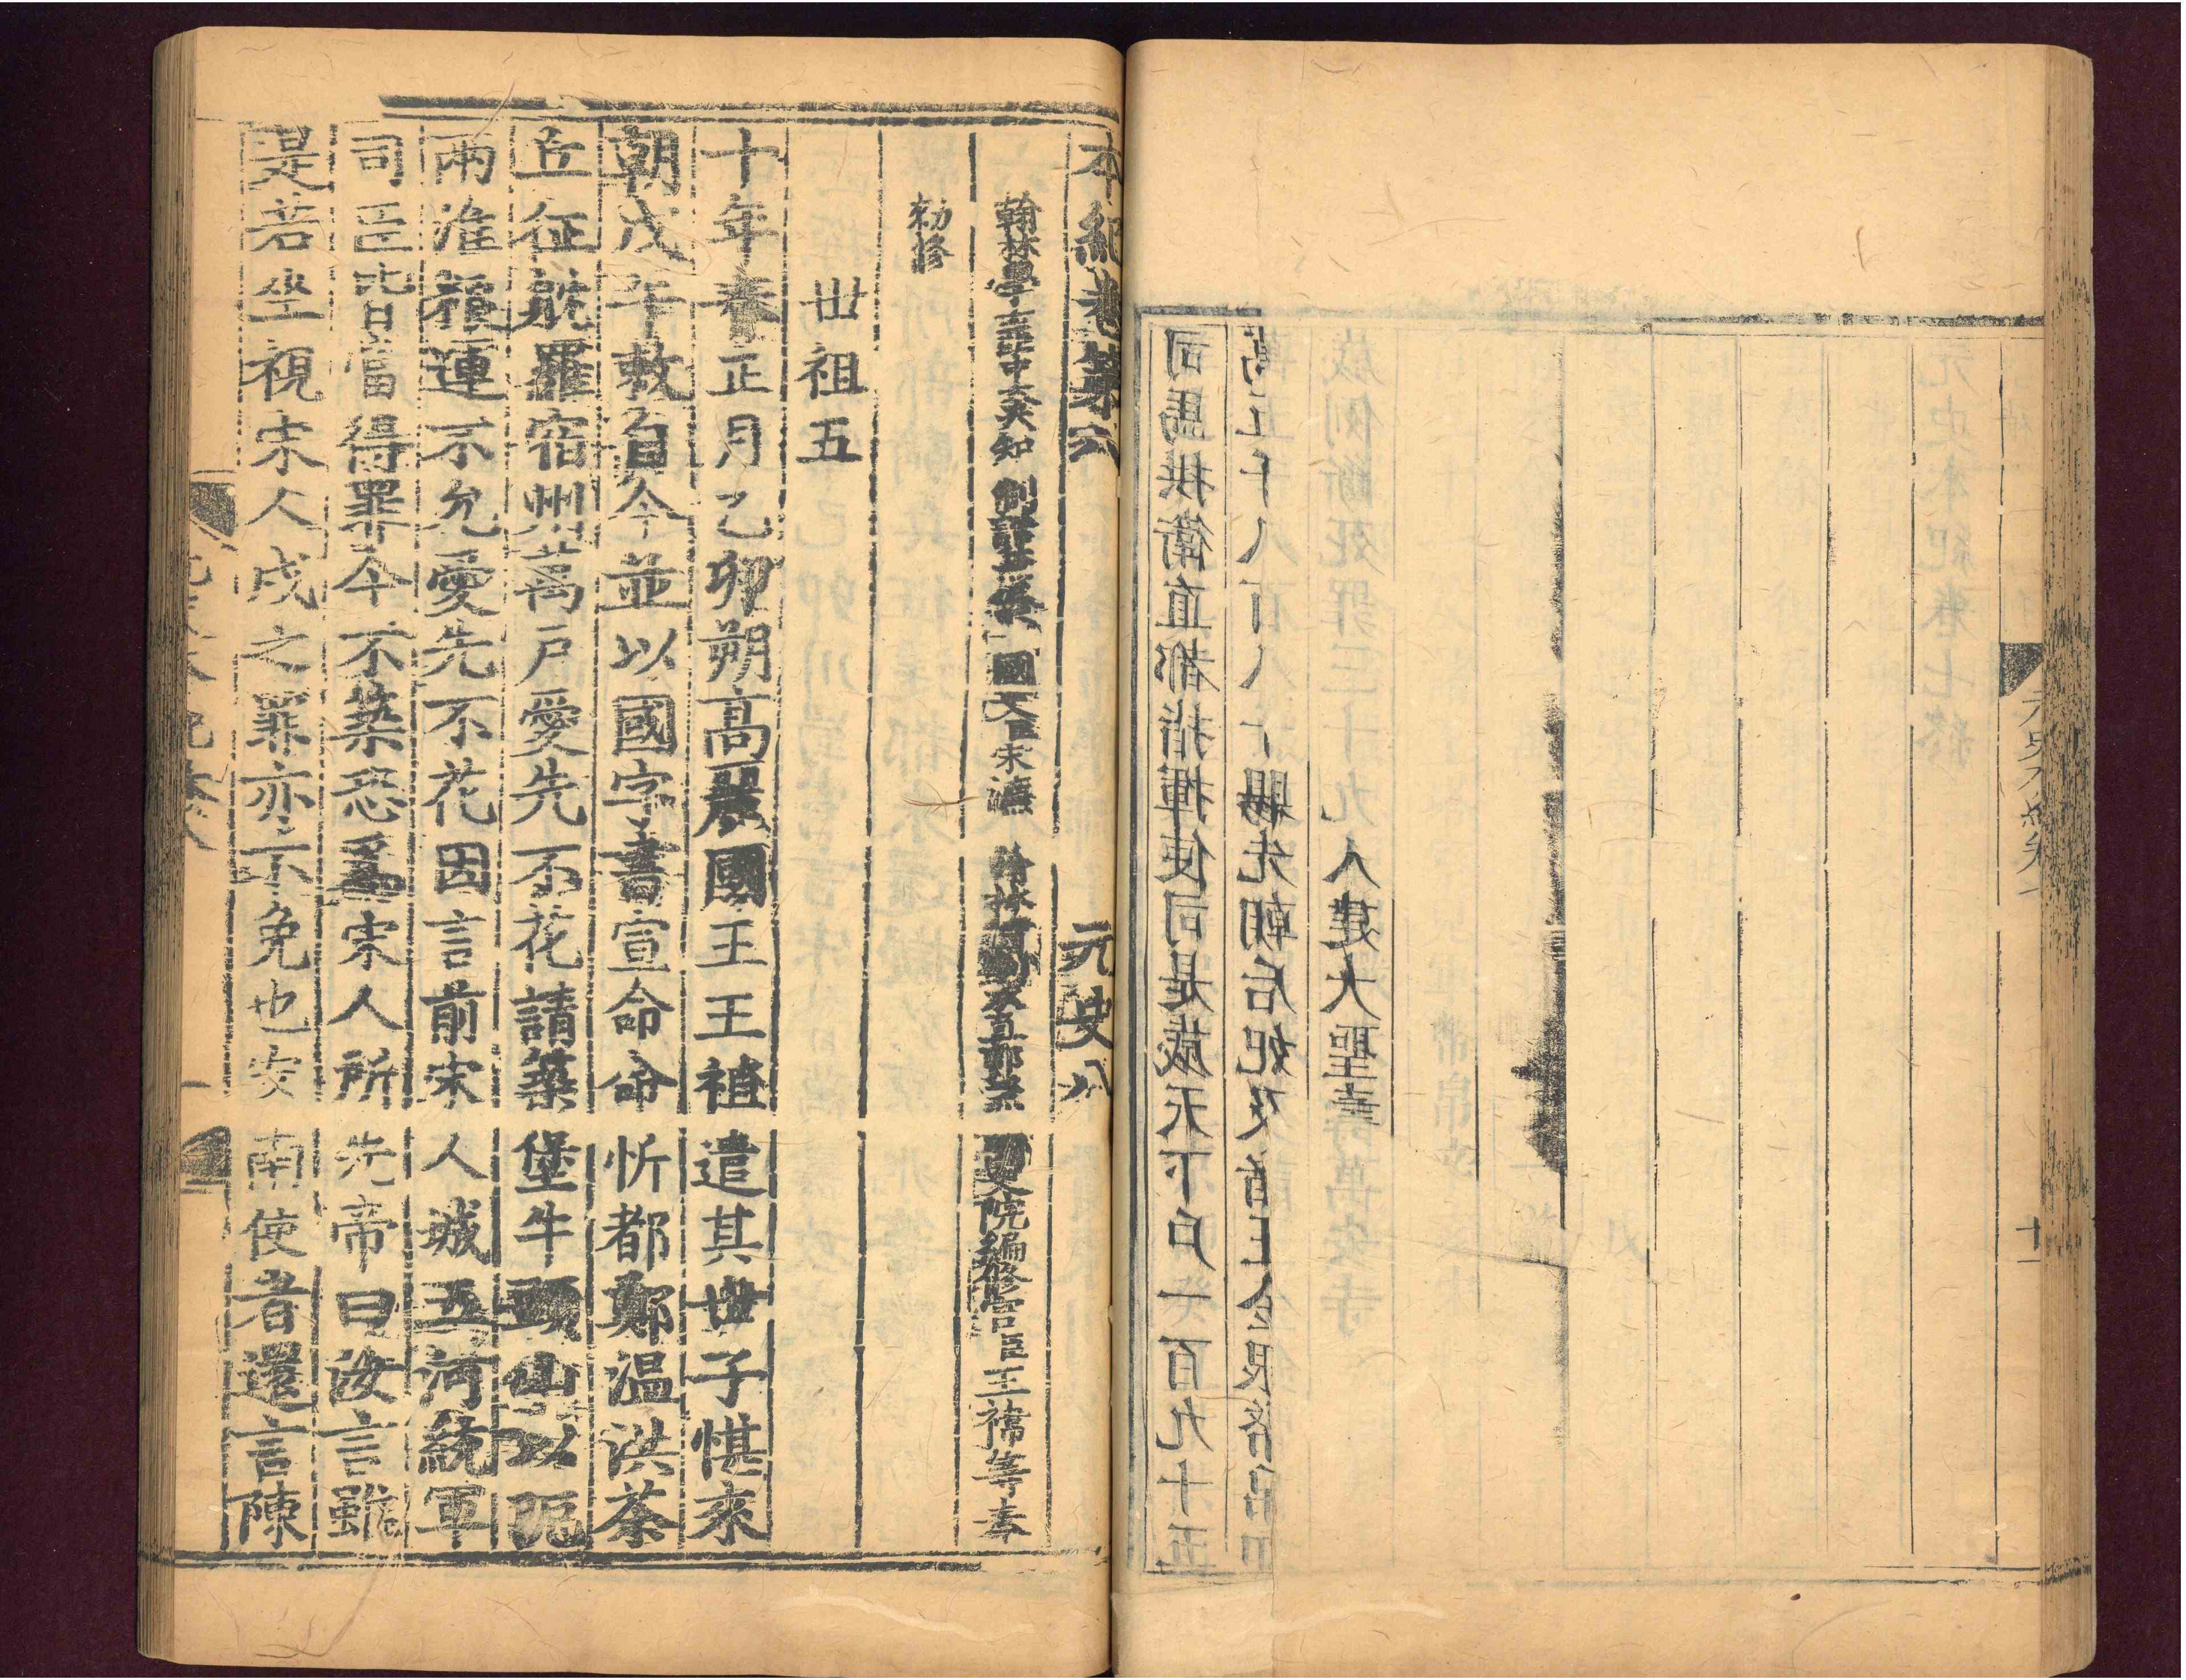 元史本紀卷七終
歲例斷死罪三十九人建大聖壽萬安寺
司馬拱衛直都指揮使司是歲天下戶一百九十五
本紀卷第八 元史八
翰林學士亞中大夫知制誥兼修國史臣宋濂 翰林待制承直郎兼國史院編修官臣王禕等奉
勑修
世祖五
十年春正月乙卯朔高麗國王王禃遣其世子愖來
朝戊午敕自今並以國字書宣命命忻都鄭溫洪茶
丘征躭羅宿州萬戶愛先不花請築堡牛頭山以阨
兩淮糧運不允愛先不花因言前宋人城五河統軍
司臣皆當得罪今不築恐爲宋人所先帝曰汝言雖
是若坐視宋人戍之罪亦不免也安南使者還言陳